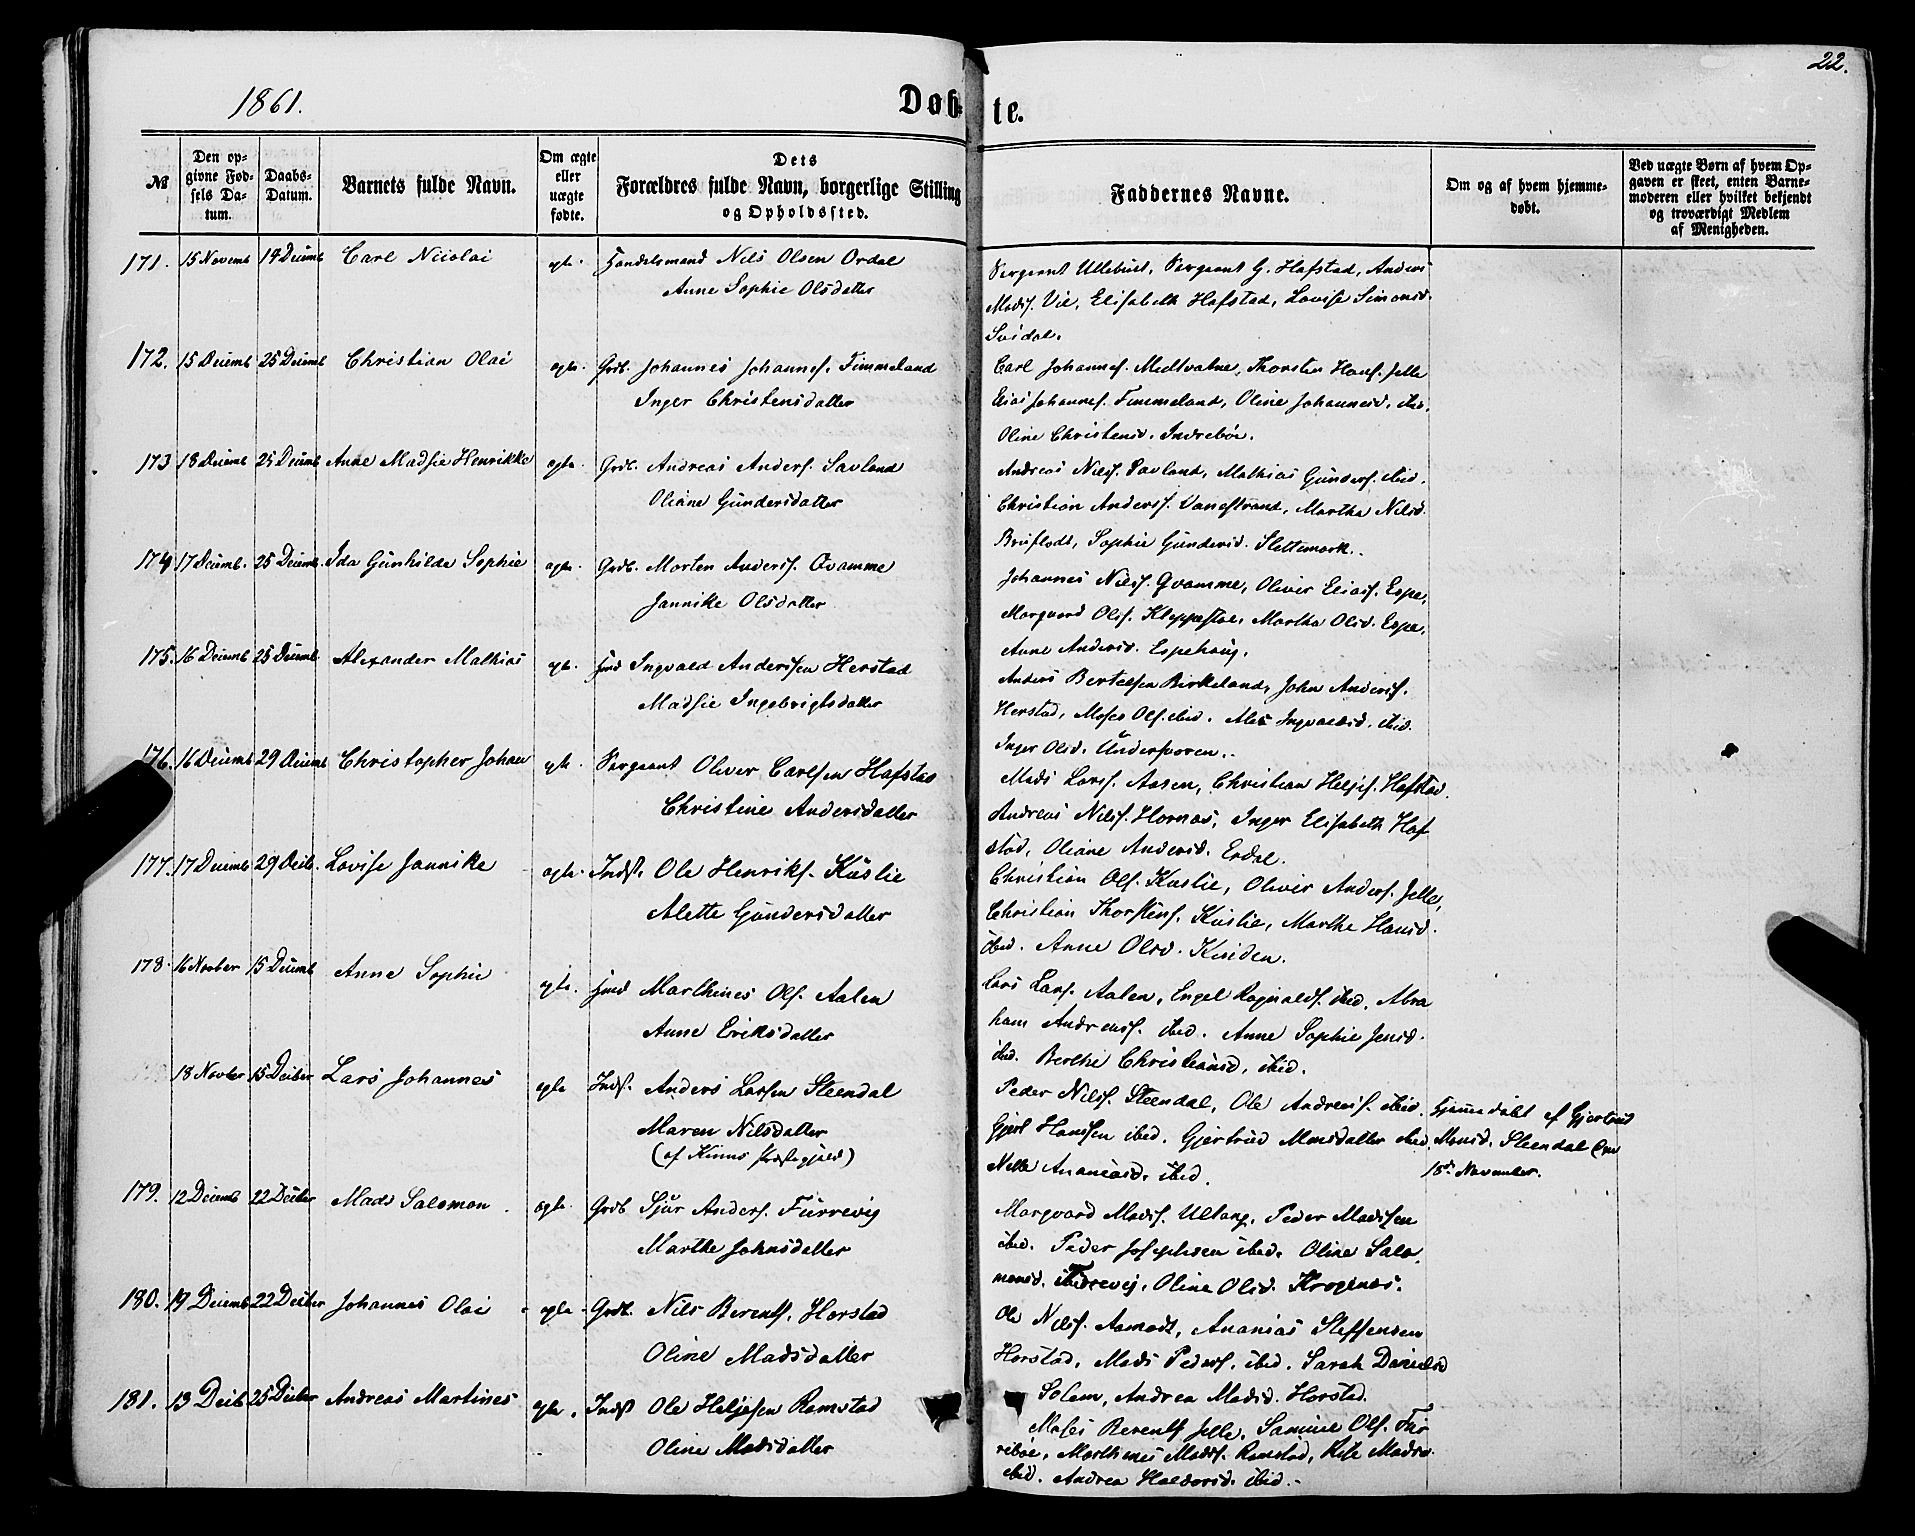 1861.
Døb-
te.
22.
№
Den op-
givne Fød-
sels Da-
tum.
Daabs-
Datum.
Barnets fulde Navn.
Om ægte
eller
uægte
fødte.
Dets
Forældres fulde Navn, borgerlige Stilling
og Opholdssted.
Faddernes Navne.
Om og af hvem hjemme-
døbt.
Ved uægte Børn af hvem Op-
gaven er skeet, enten Barne-
moderen eller hvilket bekjendt
og troværdigt Medlem
af Menigheden.
171. 15 Novemb 14 Decemb Carl Nicolai ægte. Handelsmand Nils Olsen Ordal
Anne Sophie Olsdatter
Sergeant Ullebust, Sergeant G. Hafstad, Anders
Mads. Vie, Elisabeth Hafstad, Lovise Simonsd.
172. 15 Decemb 25 Decemb Christian Olai ægte. Grdb. Johannes Johannes. Timmeland
Inger Christensdatter
Carl Johannes. Medtvatne, Thorsten Hans. Jelle
Elias Johannes. Timmeland, Oline Johannesd. ibid,
Oline Christensd. Indrebøe.
173 18 Decemb 25 Decemb Anne Madsie Henrikke ægte. Grdb. Andreas Anders. Savland
Oliane Gundersdatter
Andreas Nils. Savland, Mathias Gunders. ibid.
Christian Anders. Vonestrand, Martha Nilsd.
Bruflodt, Sophie Gundersd. Slettemark.
174 17 Decemb. 25 Decemb. Ida Gunhilde Sophie ægte. Grdb. Morten Anders. Qvamme
Jannike Olsdatter
Johannes Nils. Qvamme, Oliver Elias. Espe,
Morqvard Ols. Kleppestøe, Martha Olsd. Espe,
Anne Andersd. Espehoug.
175. 16 Decemb 25 Decemb Alexander Mathias ægte. Hmd Ingvald Anderssen Herstad
Madsie Ingebrigtsdatter
Anders Bertelsen Birkeland, John Anders.
Herstad, Moses Ols. ibid. Ales Ingvaldsd. ibid.
Inger Olsd.
176. 16 Decemb 29 Decemb Christopher Johan ægte. Sergeant Oliver Carlsen Hafstad
Christine Andersdatter
Mads Lars. Aasen, Christian Heljes. Hafstad.
Andreas Nils. Hornæs, Inger Elisabeth Haf
stad, Oliane Andersd. Erdal.
177. 17 Decemb 29 Decb. Lovise Jannike ægte. Indst. Ole Henriks. Kuslie
Alette Gundersdatter
Christian Ols. Kuslie, Oliver Anders. Jelle,
Christian Thorstens. Kuslie, Marthe Hansd.
ibid. Anne Olsd.
178. 16 Novber 15 Decemb Anne Sophie ægte. Hmd Marthines Ols. Aalen
Anne Eriksdatter
Lars Lars. Aalen, Engel Ragnalds. ibid, Abra
ham Andreas. ibid. Anne Sophie Jensd.
ibid. Berthe Christiansd, ibid.
18 Novber 15 Decber Lars Johannes ægte Indst. Anders Larsen Steendal
Maren Nilsdatter
(af Kinns Præstegjæld)
Peder Nils. Steendal, Ole Andreas. ibid.
Gjert Hanssen ibid. Gjertrud Monsdatter ibid
Nille Ananiasd. ibid.
Hjemmedøbt af Gjertrud
Monsd. Steendal den
18de November.
179. 12 Decemb 22 Decber Mads Salomon ægte. Grdb Sjur Anders. Furrevig
Marthe Johnsdatter
Marqvard Mads. Ullang, Peder Madssen
ibid. Peder Josephsen ibid. Oline Salo
monsd. Furrevig, Oline Olsd. Krogenæs.
180. 19 Decemb 22 Decber Johannes Olai ægte Grdb. Nils Berents. Horstad
Oline Madsdatter
Ole Nils. Aamodt, Ananias Steffensen
Horstad, Mads Peders. ibid. Sarah Danielsd
Solem, Andrea Madsd. Horstad.
181. 13 Decb 25 Decber Andreas Martines ægte. Indst Ole Heljesen Ramstad
Oline Madsdatter
Moses Berents Jelle, Samuel Ols. Fur
rebøe, Marthines Mads. Ramstad, Madsd.
ibid. Andrea Haldorsd. ibid.